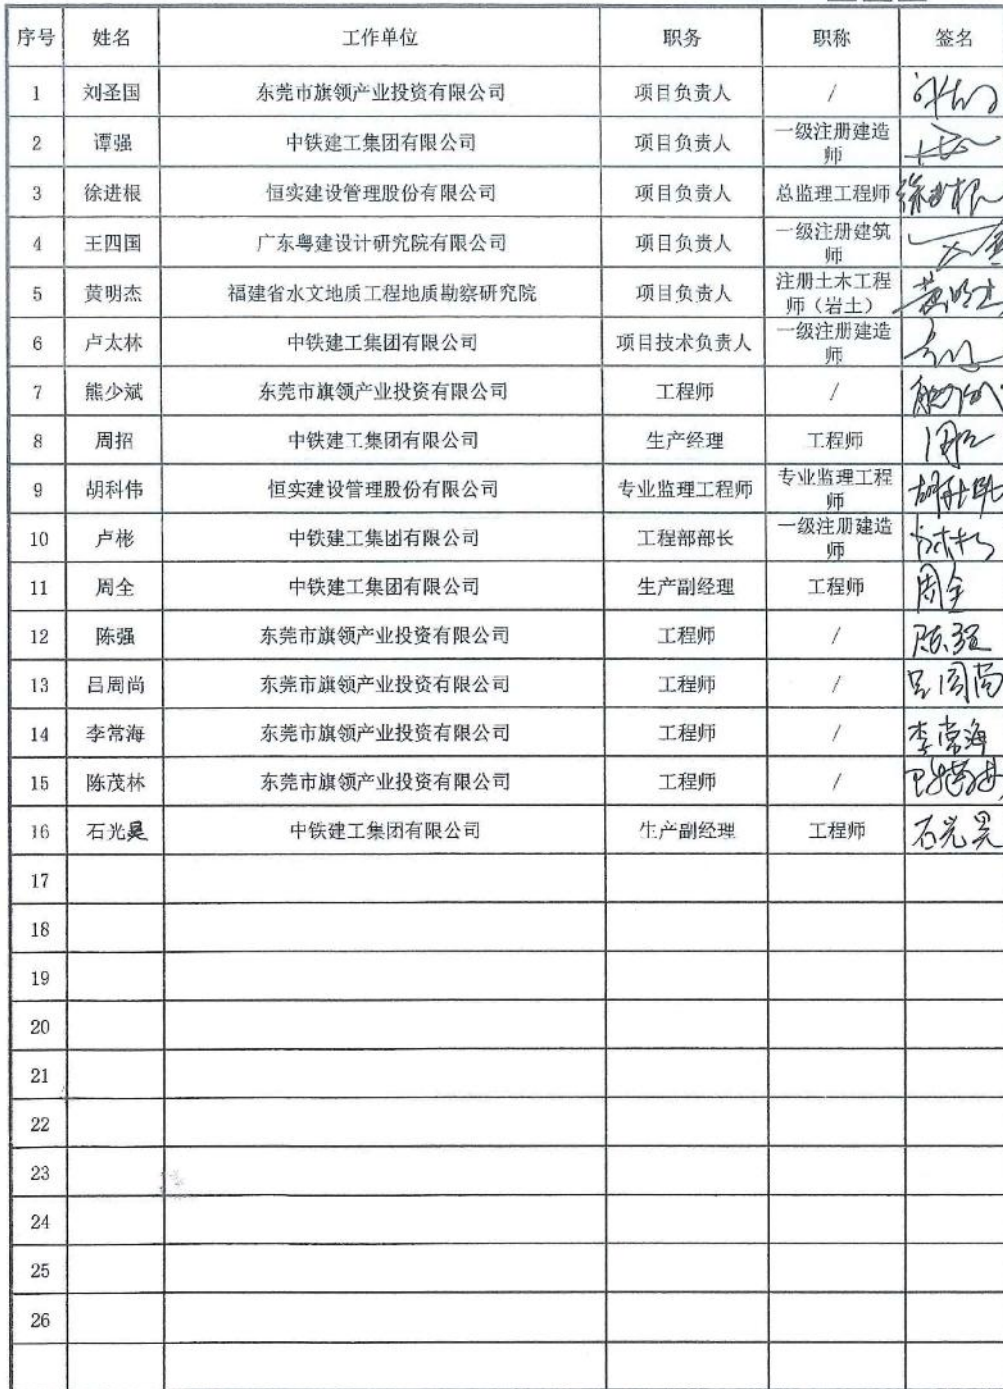 序号 姓名 工作单位 职务 职称 签名
1 刘圣国 东莞市旗领产业投资有限公司 项目负责人 /
2 谭强 中铁建工集团有限公司 项目负责人 一级注册建造师
3 徐进根 恒实建设管理股份有限公司 项目负责人 总监理工程师 徐进根
4 王四国 广东粤建设计研究院有限公司 项目负责人 一级注册建筑师
5 黄明杰 福建省水文地质工程地质勘察研究院 项目负责人 注册土木工程师（岩土） 黄明杰
6 卢太林 中铁建工集团有限公司 项目技术负责人 一级注册建造师
7 熊少斌 东莞市旗领产业投资有限公司 工程师 /
8 周招 中铁建工集团有限公司 生产经理 工程师 周招
9 胡科伟 恒实建设管理股份有限公司 专业监理工程师 专业监理工程师 胡科伟
10 卢彬 中铁建工集团有限公司 工程部部长 一级注册建造师
11 周全 中铁建工集团有限公司 生产副经理 工程师 周全
12 陈强 东莞市旗领产业投资有限公司 工程师 / 陈强
13 吕周尚 东莞市旗领产业投资有限公司 工程师 / 吕周尚
14 李常海 东莞市旗领产业投资有限公司 工程师 / 李常海
15 陈茂林 东莞市旗领产业投资有限公司 工程师 /
16 石光昊 中铁建工集团有限公司 生产副经理 工程师 石光昊
17
18
19
20
21
22
23
24
25
26